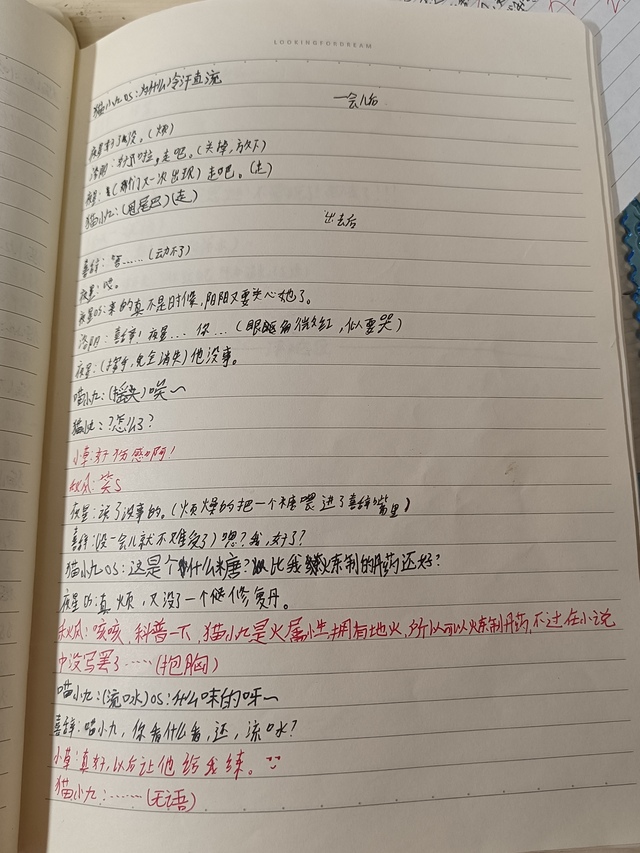 LOOKINGFORDREAM
猫小九OS:为什么冷汗直流
一会儿后
夜星:好了没。(烦)
洛阳:好了啦。走吧。(关掉,放下)
夜星:(他们又一次出现)走吧。(走)
猫小九:(甩尾巴)(走)
出去后
喜辞:嗯……(动不了)
夜星:吧。
夜星OS:来的真不是时候,阳阳又要关心她了。
洛阳:喜辞!夜星…你…(眼眶稍微红,似要哭)
夜星:(挥手,完全消失)他没事。
喵小九:(摇头)唉~
猫小九:?怎么了?
小草:好伤感啊!
秋风:笑S
夜星:该了没事的。(烦燥的把一个糖喂进了喜辞嘴里)
喜辞:(没一会儿就不难受了)嗯?我,好了?
猫小九OS:这是个什么糖?比我炼制的丹药还好?
夜星OS:真烦,又没了一个低修复丹。
秋风:咳咳,科普一下,猫小九是火属性,拥有地火,所以可以炼制丹药,不过在小说
中没写罢了……(抱胸)
喵小九:(流口水)OS:什么味的呀~
喜辞:喵小九,你看什么看,还,流口水?
小草:真好,以后让他给我练。
猫小九:……(无语)